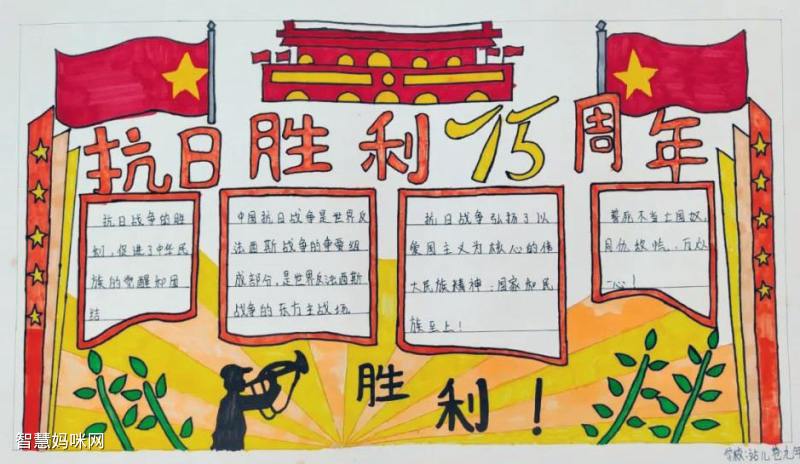 抗日胜利75周年
抗日战争的胜
利，促进了中华民
族的觉醒和团
结
中国抗日战争是世界反
法西斯战争的重要组
成部分，是世界反法西斯
战争的东方主战场
抗日战争弘扬了以
爱国主义为核心的伟
大民族精神：国家和民
族至上！
誓死不当亡国奴，
同仇敌忾，万众
一心！
胜利！
智慧妈咪网